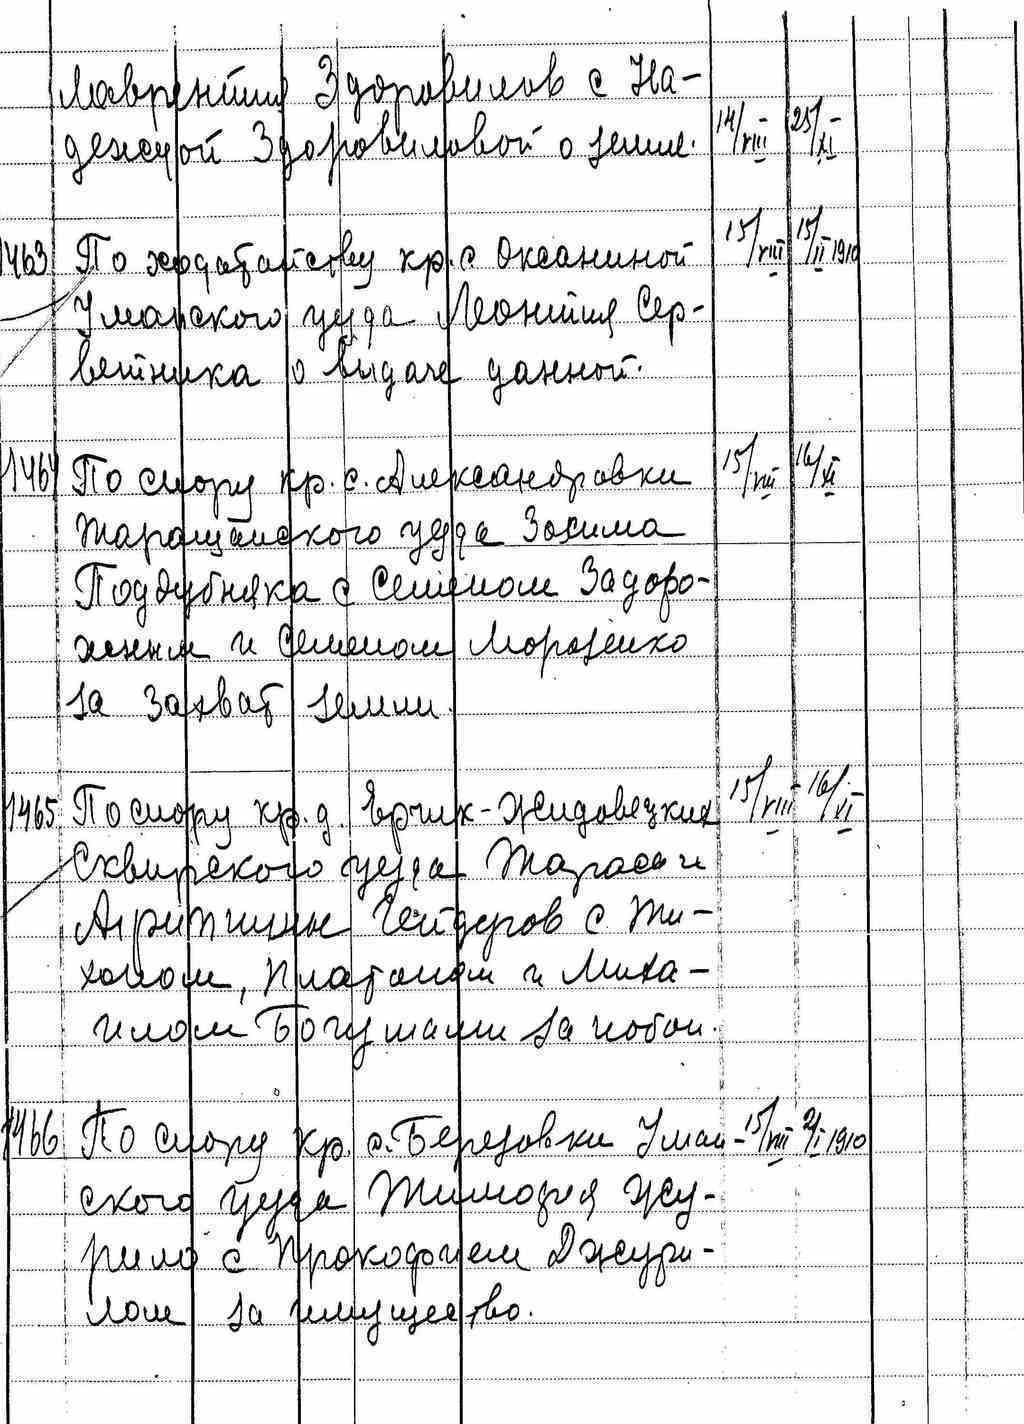 Лаврентия Здоровилов с На-
деждой Здоровиловой о земле. 14/VIII 25/XI
1463 По ходатайству кр. с Оксаниной 15/VIII 15/II 1910
Уманского уезда Леонтия Сер-
ветника о выдаче данной.
1464 По спору кр. с. Александровки 15/VIII 16/XI
Таращанского уезда Зосима
Поддубняка с Семеном Задоро-
жным и Семеном Морозенко
за захват земли.
1465 По спору кр. д. Ерчик-Жидовецких 15/VIII 16/VI
Сквирского уезда Тараса и
Агрипины с Ти-
хоном, Платоном и Миха-
илом Богушами за побои.
1466 По спору кр. с. Березовки Уман- 15/VIII 2/I 1910
ского уезда Тимофея Жу-
рило с Прокофием Джури-
лом за имущество.